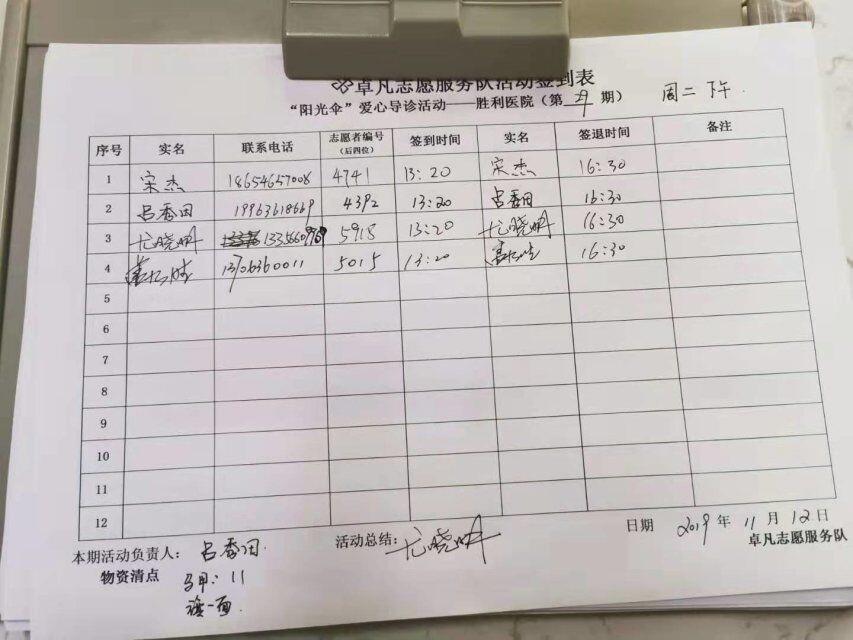 卓凡志愿服务队活动签到表
“阳光伞”爱心导诊活动——胜利医院(第29期) 周二下午
序号 实名 联系电话 志愿者编号(后四位) 签到时间 实名 签退时间 备注
1 宋杰 18654657008 4741 13:20 宋杰 16:30
2 吕香田 19963618669 4392 13:20 吕香田 16:30
3 尤晓明 5918 13:20 尤晓明 16:30
4 13706360011 5015 13:20 16:30
5
6
7
8
9
10
11
12
本期活动负责人: 吕香田 活动总结: 尤晓明 日期 2019年11月12日
物资清点 马甲: 11 卓凡志愿服务队
旗一面